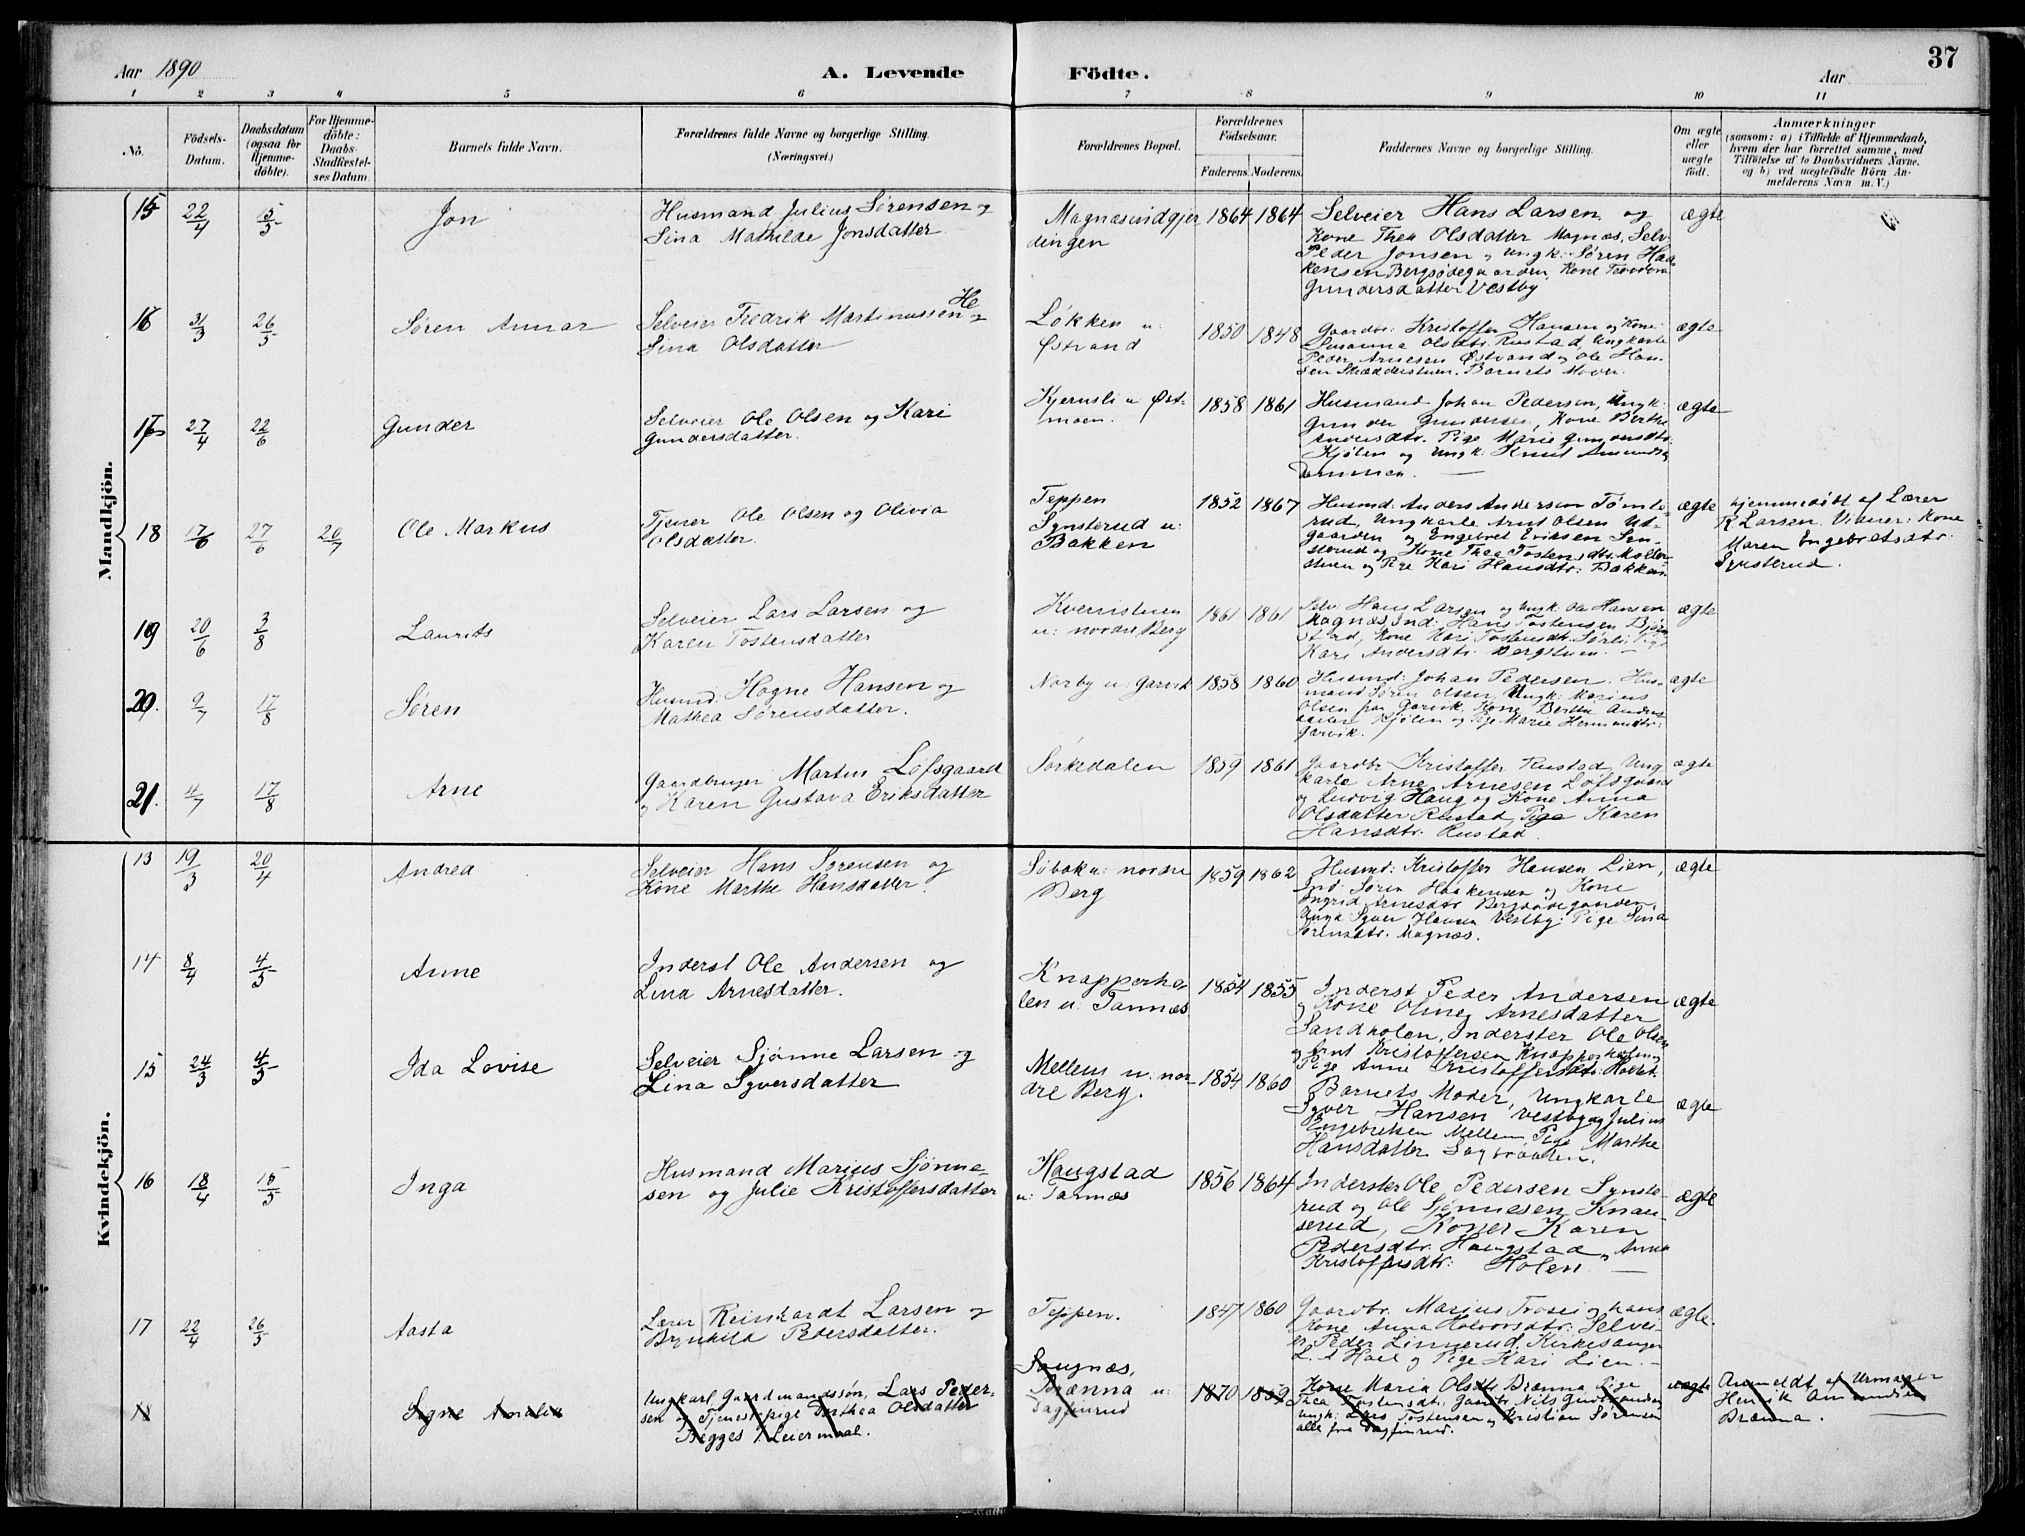 37
Aar 1890
A. Levende
Födte.
Aar
1 2 3 4 5 6 7 8 9 10 11
No.
Födsels-
Datum.
Daabsdatum
(ogsaa for
Hjemme-
döbte).
For Hjemme-
döbte:
Daabs-
Stadfæstel-
ses Datum.
Barnets fulde Navn.
Forældrenes fulde Navne og borgerlige Stilling.
(Næringsvei.)
Forældrenes Bopæl.
Forældrenes
Födselsaar.
Faderens. Moderens.
Faddernes Navne og borgerlige Stilling.
Om ægte
eller
uægte
födt.
Anmærkninger
(saasom: a) i Tilfælde af Hjemmedaab,
hvem der har forrettet samme, med
Tilföielse af to Daabsvidners Navne.
og b) ved uægtefödte Börn An-
melderens Navn m.V.)
Mandkjön.
15 22/4 15/5 Jon
Husmand Julius Sørensen og
Sina Mathilde Jonsdatter
Magnæsindgjer
dingen
1864 1864
Selveier Hans Larsen og
Kone Thea Olsdatter Magnæs, Selv.
Peder Jonsen og Ungk. Søren Haa-
kensen Bergsødegaarden, Kone
Gundersdatter Vestby
ægte
16 31/3 26/5 Søren Annar
Selveier Fredrik Martinussen og
Sina Olsdatter
Løkken u:
Østrand
1850 1848
Gaardbr: Kristoffer Hansen og Kone
Susanna Olsdtr. Rustad, Ungkarle
Peder Arnesen Østrand og Ole Han-
sen Skrædderstuen. Barnets Moder.
ægte
17 27/4 22/6 Gunder
Selveier Ole Olsen og Kari
Gundersdatter.
Kjernsli u Øst-
moen.
1858 1861
Husmand Johan Pedersen, Ungk.
Gunder Gundersen, Kone Berthe
Andersdtr. Pige Marie Gundersdtr.
Kjølen og Ungk. Knut
ægte
18 17/6 27/6 20/7 Ole Markus
Tjener Ole Olsen og Olivia
Olsdatter.
Teppen
Synsterud u:
Bakken
1852 1867
Husmd: Anders Andersen Tømte-
rud, Ungkarle Arnt Olsen Ut-
gaarden og Engebret Eriksen Syn-
sterud og Kone Thea Tostensdtr. Møller-
stuen og Pige Kari Hansdtr: Bakken.
ægte
Hjemmedøbt af Lærer
R Larsen. Vidner: Kone
Maren Engebretsdtr.
Synsterud.
19 20/6 3/8 Laurits
Selveier Lars Larsen og
Karen Tostensdatter
Kverristuen
u: nordre Berg
1861 1861
Selv: Hans Larsen og Ungk. Ole Hansen
Magnæs, Ind: Hans Tostensen Bjøn-
stad, Kone Kari Tostensdtr. Sørli, Pige
Kari Andersdtr. Bergstuen.
ægte
20. 9/7 17/8 Søren
Husmd: Hogne Hansen og
Mathea Sørensdatter.
Norby u: Garvik
1858 1860
Husmd: Johan Pedersen, Hus-
mand Søren Olsen, Ungk: Marius
Olsen fra Garvik. Kone Berthe Anders
datter Kjølen og Pige Marie Hermandtr:
Garvik.
ægte
21. 11/7 17/8 Arne
Gaardbruger Martin Løfsgaard
og Karen Gustava Eriksdatter
Sørkedalen
1859 1861
Gaardbr Kristoffer Rustad, Ung
karle Arne Arnesen Løfsgaard
og Ludvig Haug og Kone Anna
Olsdatter Rustad, Pige Karen
Hansdtr. Rustad.
ægte
Kvindekjön.
13 19/3 20/4 Andrea
Selveier Hans Sørensen og
Kone Marthe Hansdatter.
Søbak u: nordre
Berg
1859 1862
Husmd: Kristoffer Hansen Lien,
Ind: Søren Haakensen og Kone
Ingrid Arnesdtr Bergsødegaarden,
Ungk Syver Hansen Vestby, Pige Sina
Sørensdtr. Magnæs.
ægte
14 8/4 4/5 Anne
Inderst Ole Andersen og
Lina Arnesdatter.
Knapperho-
len u: Tannæs
1854 1855
Inderst Peder Andersen
og Kone Oline Arnesdatter
Sandholen, Inderster Ole Olsen
og Arnt Kristoffersen Knapperholen og
Pige Anne Kristoffersdtr: Holtet.
ægte
15 24/3 4/5 Ida Lovise
Selveier Sjønne Larsen og
Lina Syversdatter
Mellem u. nor-
dre Berg.
1854 1860
Barnets Moder, Ungkarle
Syver Hansen Vestby og Julius
Engebretsen Mellem, Pige Marthe
Hansdatter Sagbraaten.
ægte
16 18/4 15/5 Inga
Husmand Marius Sjønne-
sen og Julie Kristoffersdatter
Haugstad
u: Tannæs
1856 1864
Inderster Ole Pedersen Synste-
rud og Ole Sjønnesen Knau-
serud, Koner Karen
Pedersdtr. Haugstad og Anna
Kristoffersdtr: Holen.
ægte
17 22/4 26/5 Aasta
Lærer Reinhardt Larsen og
Brynhild Pedersdatter.
Teppen.
1847 1860
Gaardbr. Marius Frosei og hans
Kone Anna Halvorsdtr. Selvei-
er Peder Linnerud, Kirkesanger
L. A Hoel og Pige Kari Lien.
ægte.
18 Signe Amalia
Ungkarl Gaardmandssøn, Lars Peder-
sen og Tjenestepige Dorthea Olsdatter
Begges 1 Leiermaal.
Sougnæs,
Brænna u:
Dagfinrud
1870 1859
Kone Maria Olsdtr Brænna, Pige
Thea Tostensdtr. Gaardbr Nils Gudbrandsen
Ungk: Lars Tostensen og Kristian Sørensen
alle fra Dagfinrud.
uægte
Anmeldt af Urmager
Henrik Amundsen
Brænna.